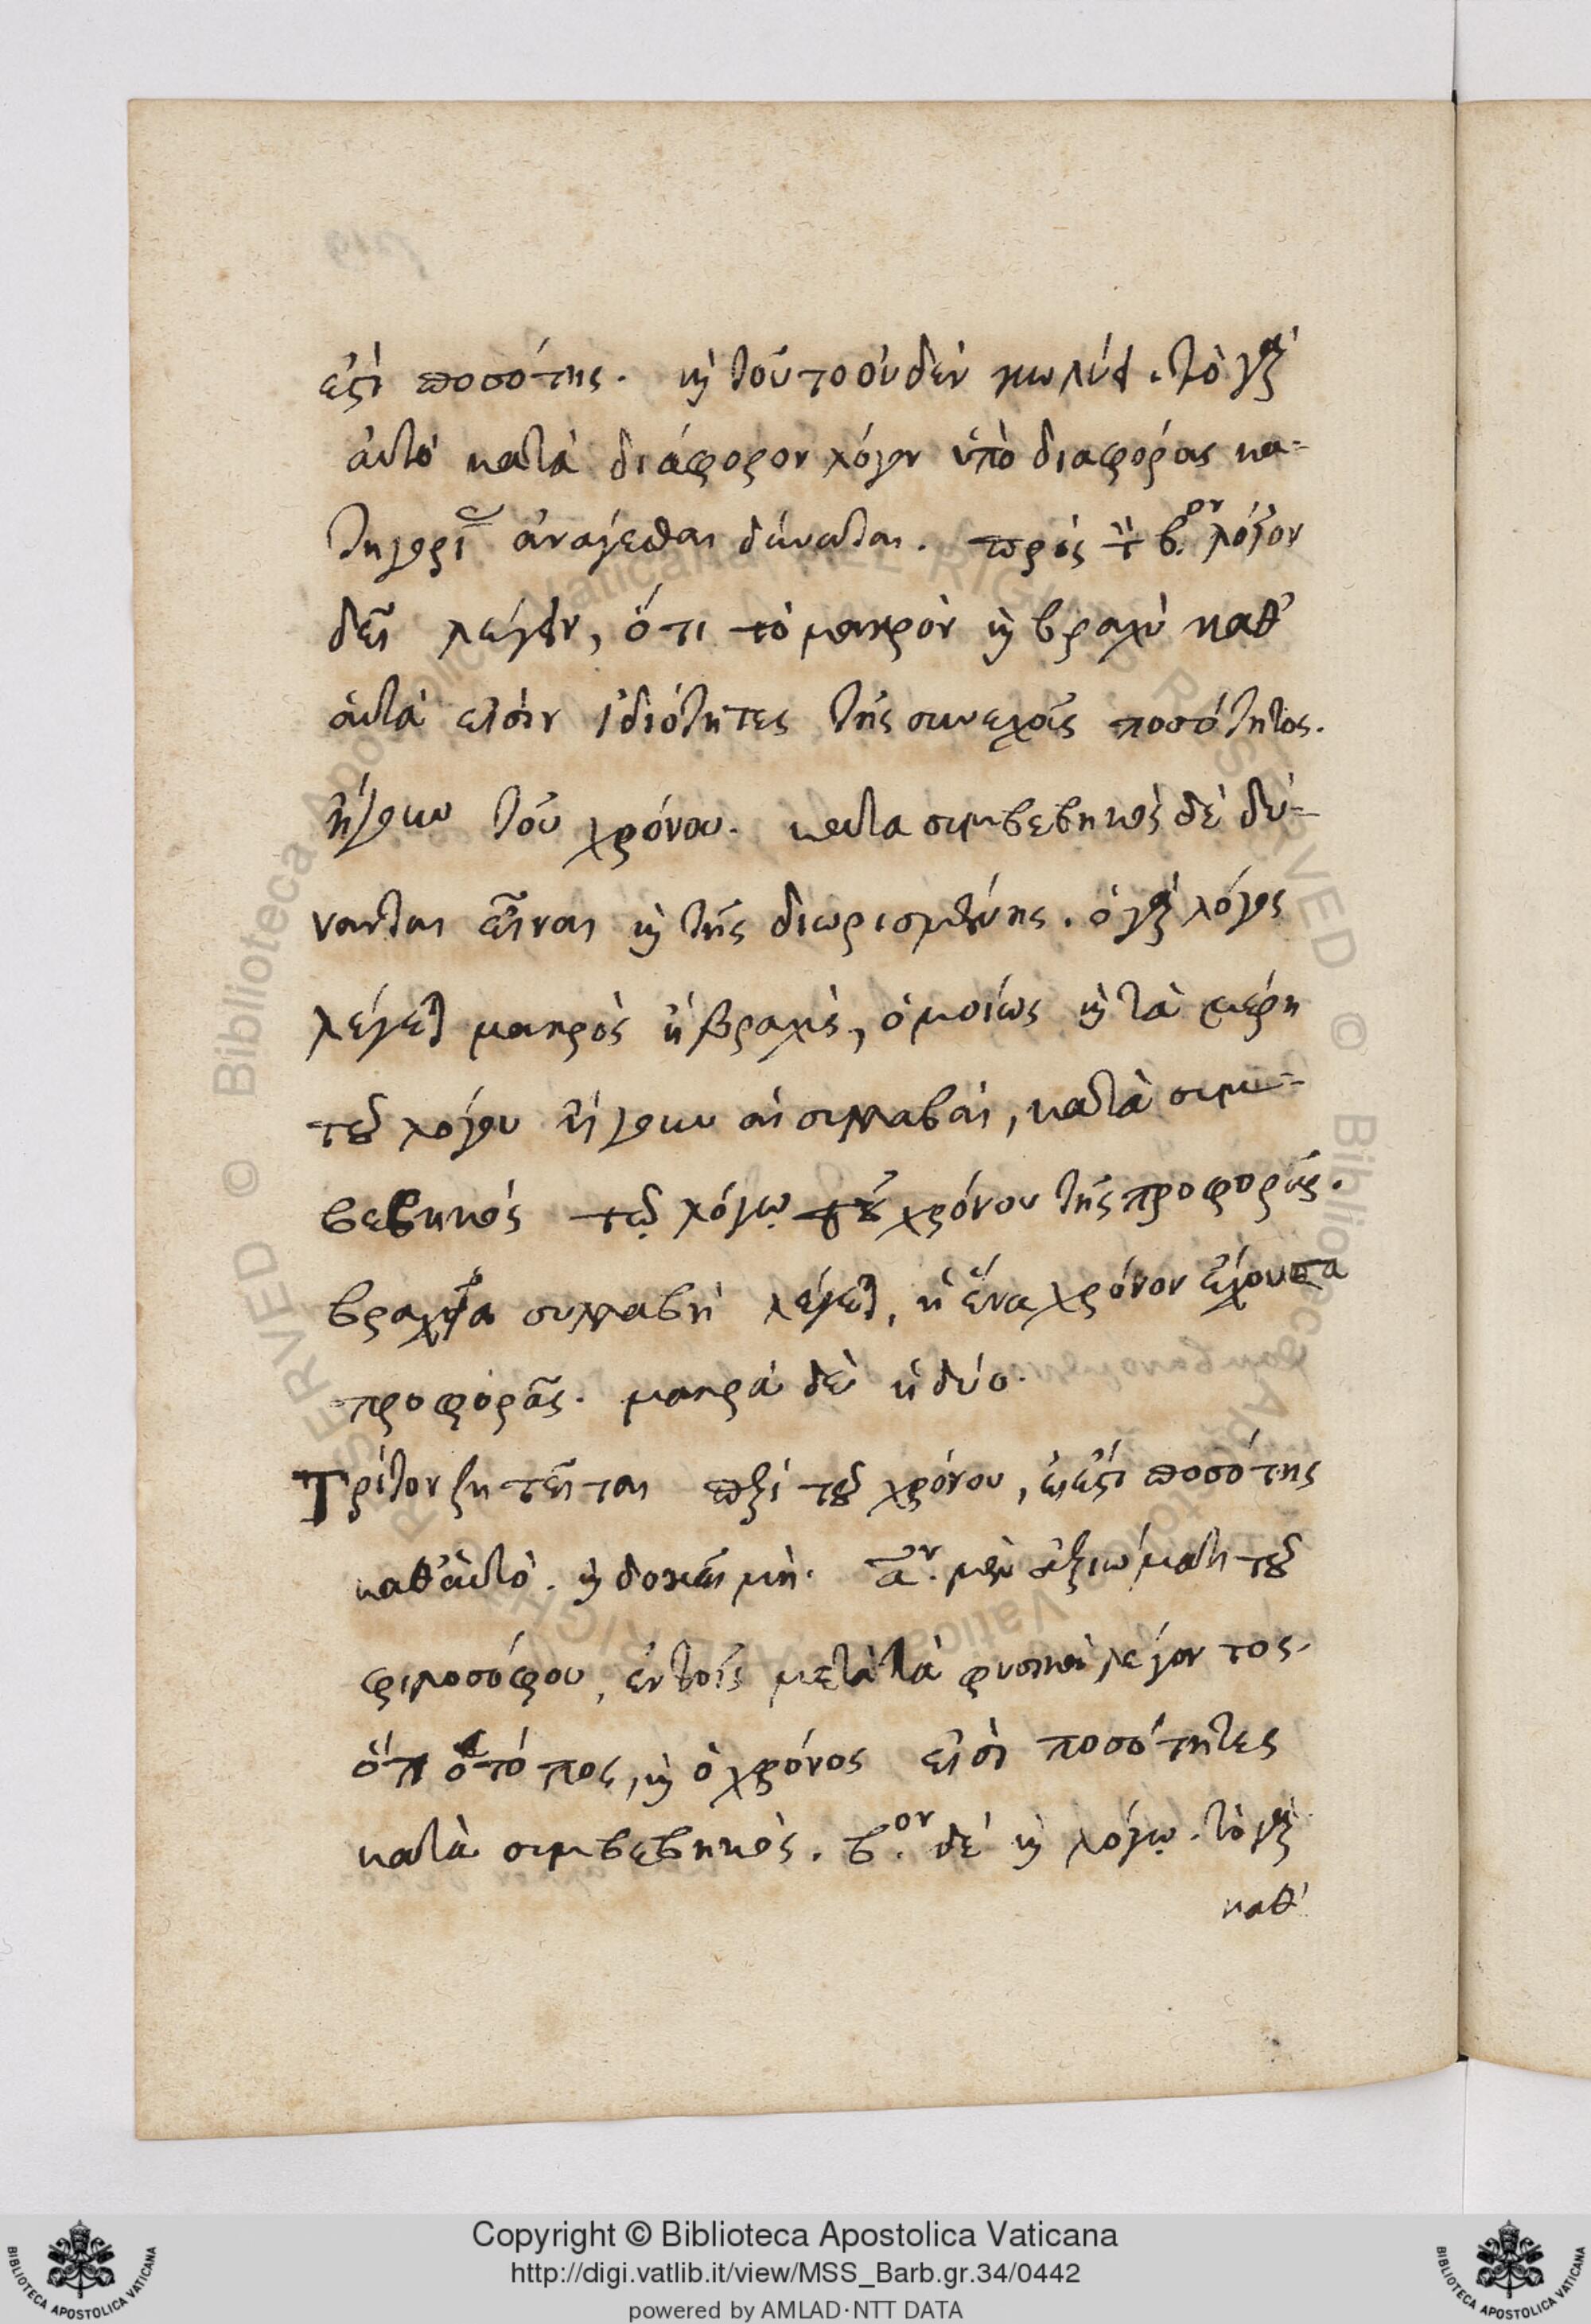 ἐςὶ ποσότης. ϗ τοῦτο οὐδὲν κωλύει. τὸ γὰρ
αὐτὸ κατὰ διάφορον λόγον ὑπὸ διαφόρας κα-
τηγορί ἀνάγεσθαι δύναται. πρὸς τ β.ον λόγον
δεῖ λέγειν, ὅτι τὸ μακρὸν ϗ βραχὺ καθ'
αὑτὰ εἰσὶν ἰδιότητες τῆς συνεχοῦς ποσότητος.
ἤγουν τοῦ χρόνου. κατα συμβεβηκὸς δὲ δύ-
νανται εἶναι ϗ τῆς διωρισμένης. ὁ γὰρ λόγος
λέγεται μακρὸς ἢ βραχὺς, ὁμοίως ϗ τὰ μέρη
τοῦ λόγου ἤγουν αἱ συλλαβαὶ, κατὰ συμ-
βεβηκὸς τῷ λόγῳ τοῦ χρόνου τῆς προφορᾶς.
βραχεῖα συλλαβὴ λέγεται, ἡ ἕνα χρόνον ἔχουσα
προφορᾶς. μακρὰ δὲ ἡ δύο.
Τρίτον ζητεῖται περὶ τοῦ χρόνου, εἰ ἐςὶ ποσότης
καθ' αὑτὸ. ϗ δοκεῖ μὴ. α.ον μὲν ἀξιώματι τοῦ
φιλοσόφου, ἐν τοῖς μετὰ τὰ φυσικὰ λέγοντος.
ὅτι ὁ τόπος, ϗ ὁ χρόνος εἰσὶ ποσότητες
κατὰ συμβεβηκὸς. β.ον δὲ ϗ λόγῳ. τὸ γὰρ
καθ'
Copyright © Biblioteca Apostolica Vaticana
http://digi.vatlib.it/view/MSS_Barb.gr.34/0442
powered by AMLAD·NTT DATA